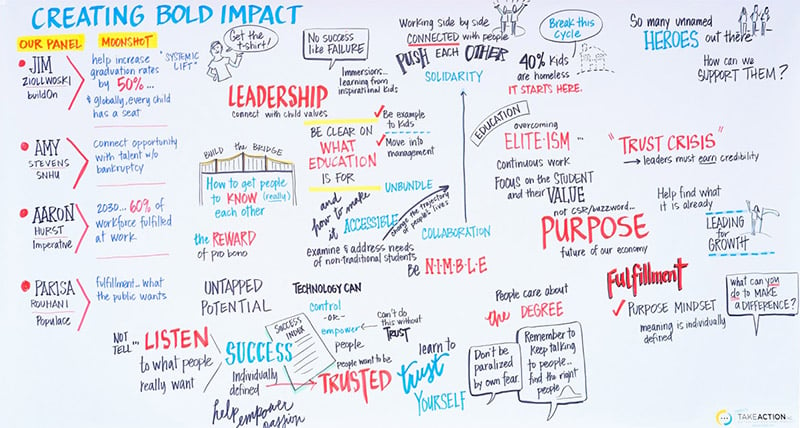 CREATING BOLD IMPACT
OUR PANEL
MOONSHOT
JIM
ZIOLLWOSKI
buildOn
help increase
graduation rates
by 50%...
& globally, every child
has a seat
"SYSTEMIC
LIFT"
AMY
STEVENS
SNHU
Connect opportunity
with talent w/o
bankruptcy
AARON
HURST
Imperative
2030... 60% of
workforce fulfilled
at work
PARISA
ROUHANI
Populace
fulfillment... what
the public wants
Get the
t-shirt!
NO SUCCESS
like FAILURE
Immersions...
learning from
inspirational kids
LEADERSHIP
connect with child values
Be example
to Kids
Move into
management
BE CLEAR ON
WHAT
EDUCATION
IS FOR
UNBUNDLE
BUILD THE BRIDGE
How to get people
to KNOW (really)
each other
the REWARD
of pro bono
and
how to make
it ACCESSIBLE
change the trajectory
of people's lives
examine & address needs
of non-traditional students
Working side by side
CONNECTED with people
PUSH EACH OTHER
SOLIDARITY
COLLABORATION
BE N·I·M·B·L·E
Break this
cycle
40% Kids
are homeless
IT STARTS HERE.
EDUCATION
overcoming
ELITE-ISM...
Continuous work
FOCUS on the STUDENT
and their VALUE
not CSR/buzzword...
PURPOSE
future of our economy
So many unnamed
HEROES out there
How can we
SUPPORT THEM?
"TRUST CRISIS"
→ leaders must earn credibility
Help find what
it is already
LEADING
for
GROWTH
Fulfillment
✓ PURPOSE MINDSET
meaning is individually
defined
What can you
do to MAKE
A DIFFERENCE?
UNTAPPED
POTENTIAL
TECHNOLOGY CAN
control
-OR-
empower
people
Can't do
this without
TRUST
NOT
TELL...
LISTEN
to what people
really want
SUCCESS
Individually
defined
SUCCESS
INDEX
help empower
passion
people want to be
TRUSTED
learn to
trust
YOURSELF
People care about
the DEGREE
Don't be
paralized
by own fear.
Remember to
Keep talking
to people...
find the right
people
TAKEACTION